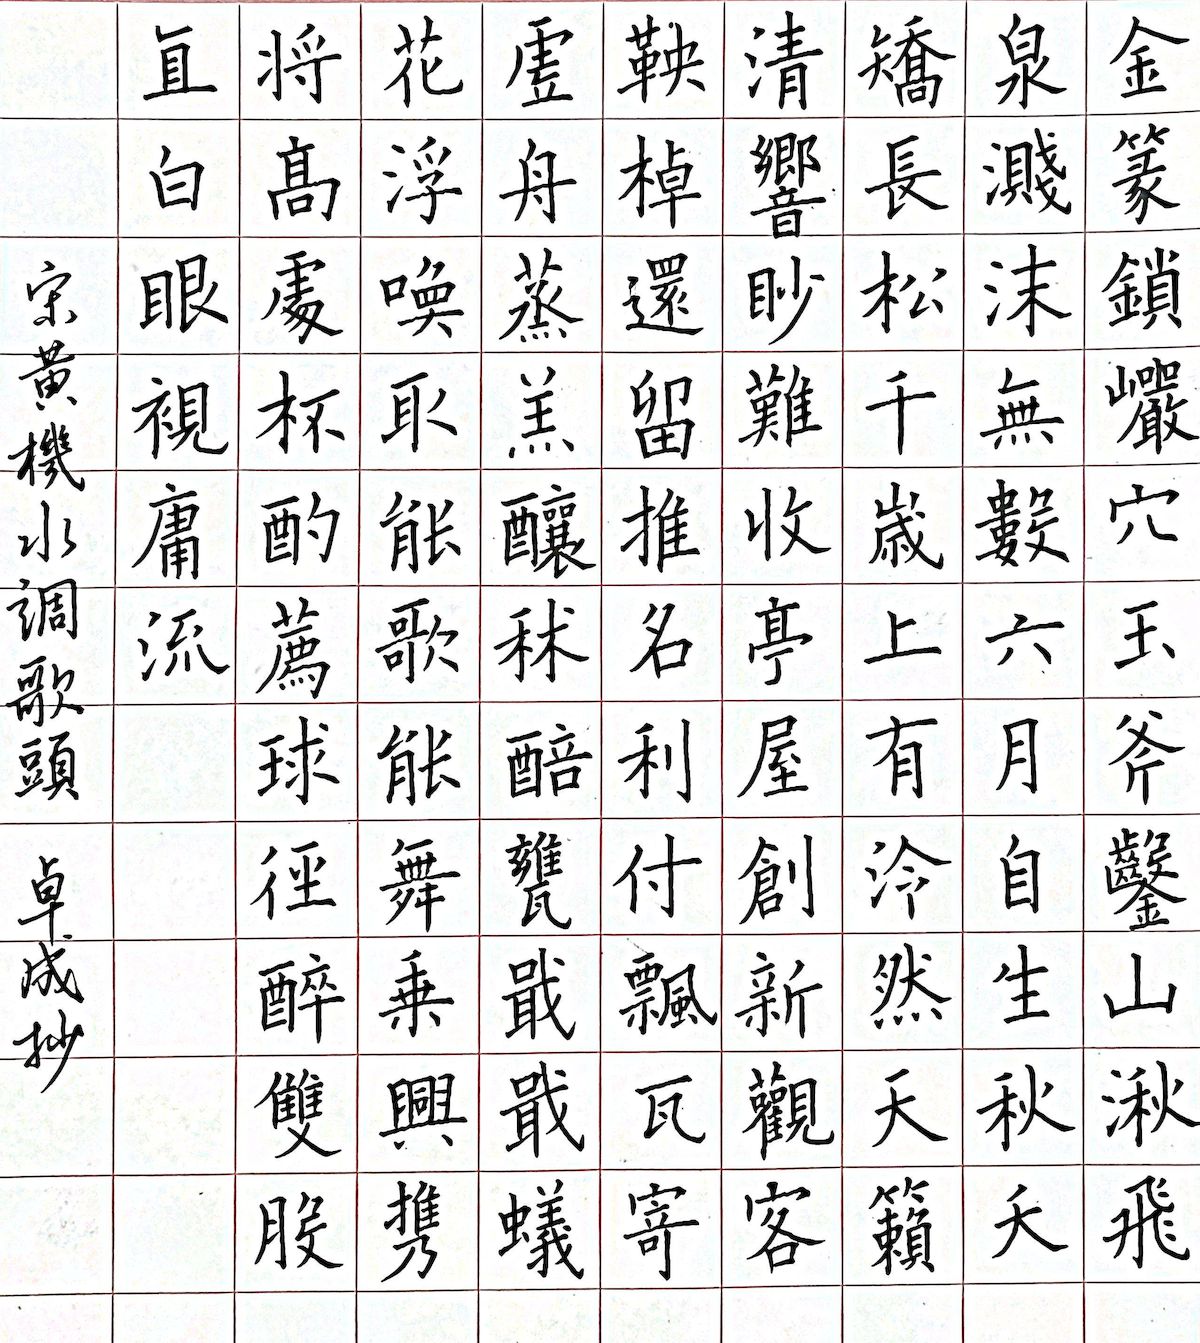 金篆鎖巖穴玉斧鑿山湫飛
泉濺沫無數六月自生秋夭
矯長松千歲上有泠然天籟
清響眇難收亭屋創新觀客
鞅棹還留推名利付飄瓦寄
虛舟蒸羔釀秫醅甕戢戢蟻
花浮喚取能歌能舞乗興携
将髙處杯酌薦球徑醉雙股
直白眼視庸流
宋黃機水調歌頭 卓成抄